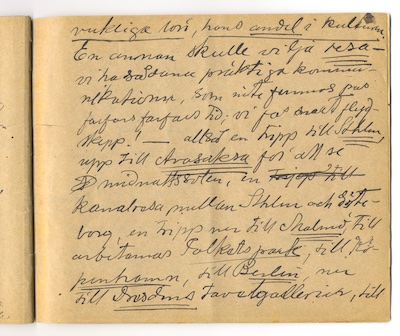 riktiga lori, hans andel i kulturen.
En annan skulle vilja resa –
vi ha sådana präktiga kommu-
nikationer, som inte funnos på
farfars farfars tid; vi få snart flyg-
skepp! – alltså en tripp till Sthlm,
upp till Avasaksa för att se
midnattssolen, en tripp till
kanalresa mellan Sthlm och Göte-
borg, en tripp ner till Malmö, till
arbetarnas Folketspark, till Kö-
penhamn, till Berlin, ner
till Dresdens tavelgallerier, till